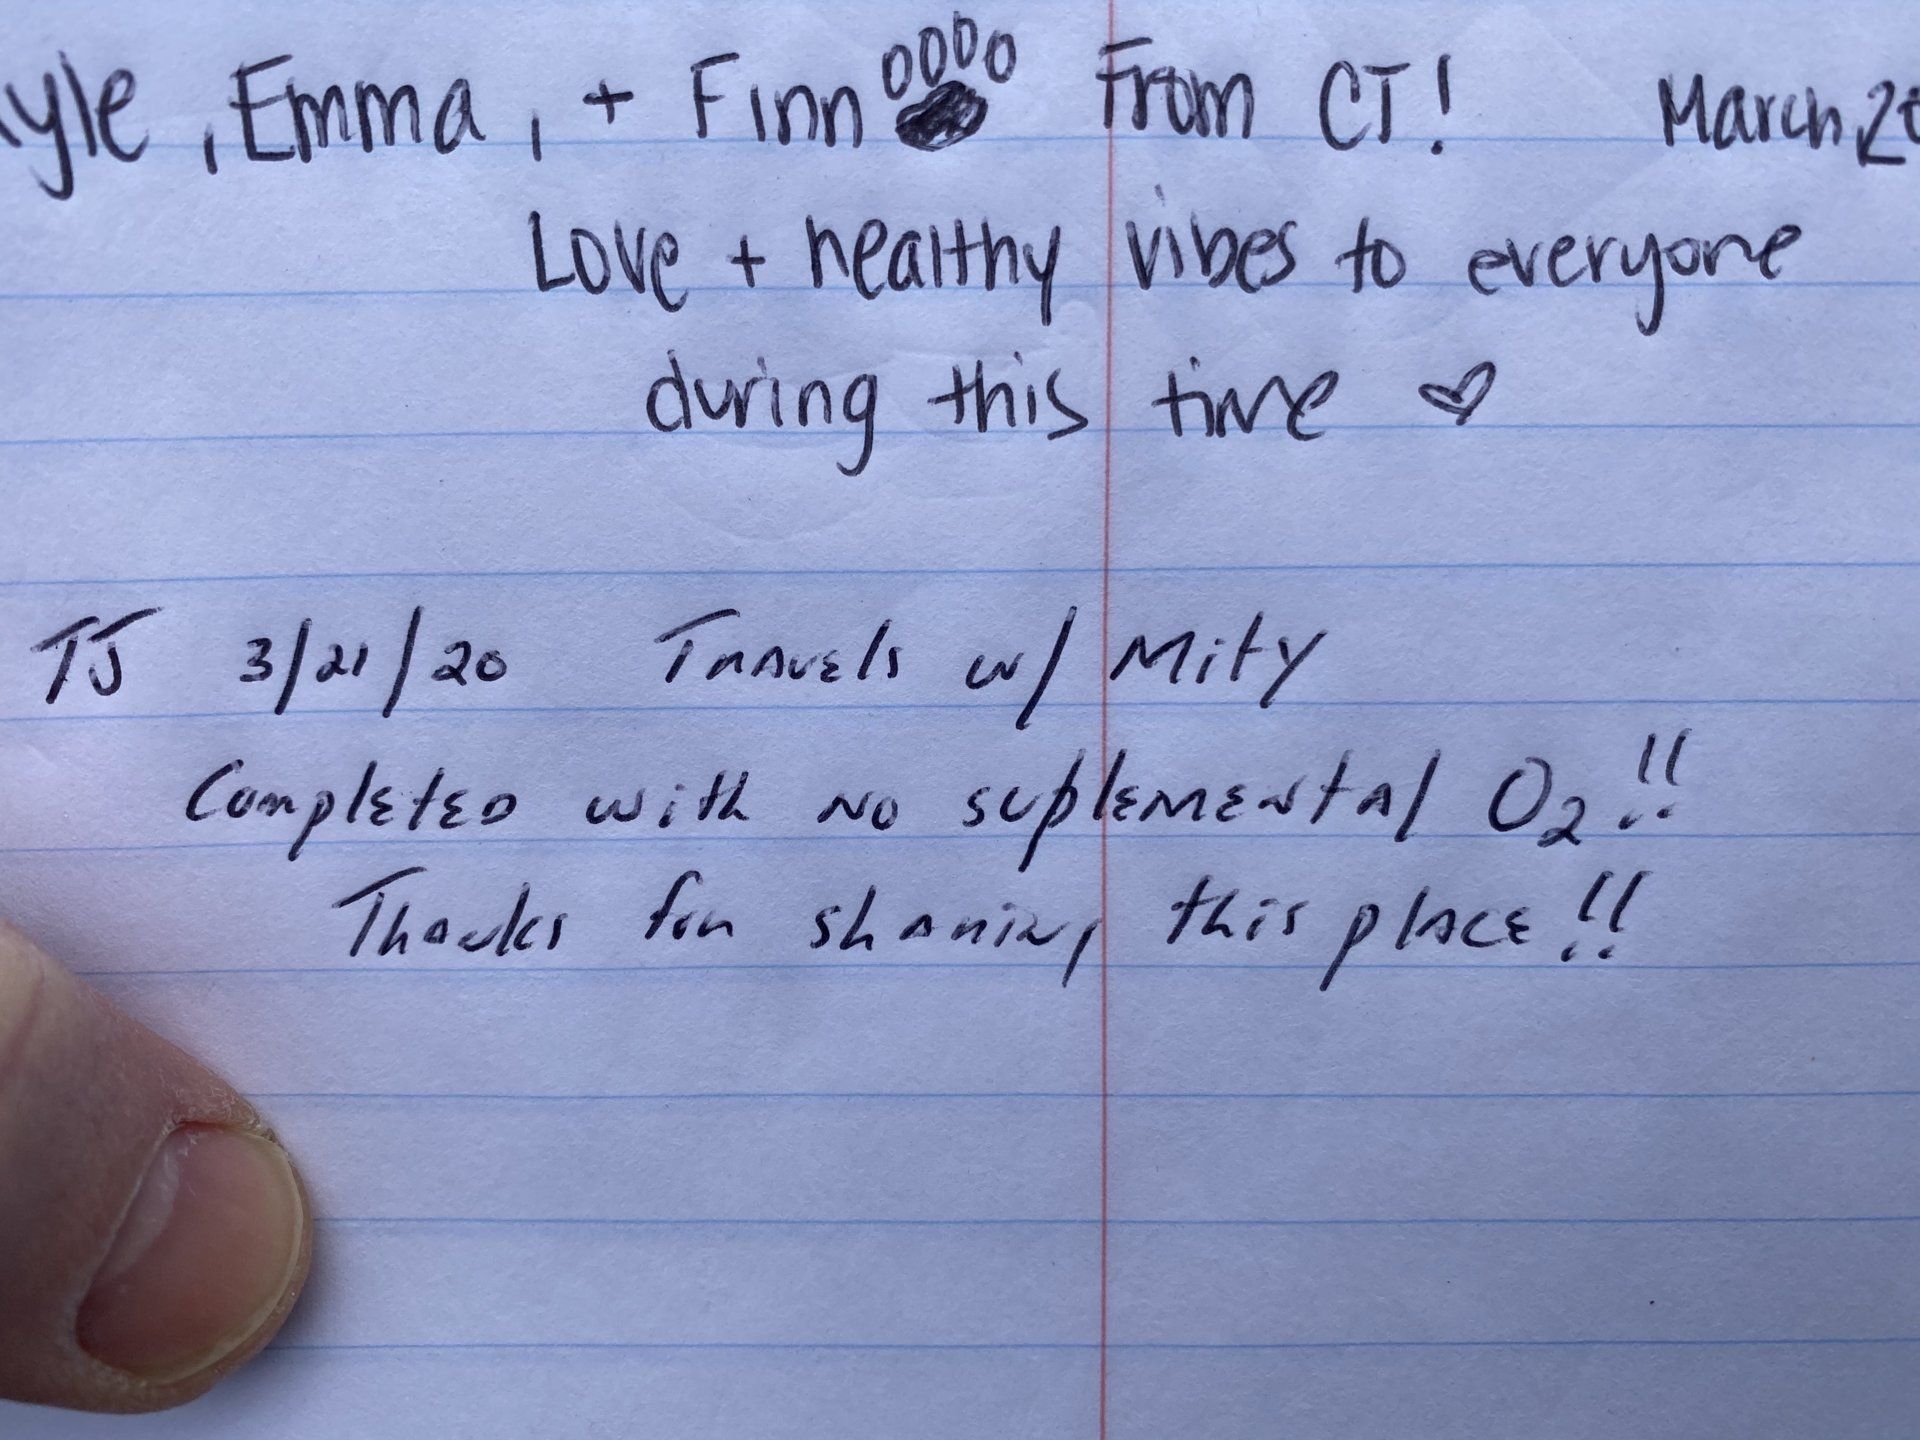 yle, Emma, + Finn From CT! March 20
Love + healthy vibes to everyone
during this time ♡
TJ 3/21/20 Travels w/ Mity
Completed with no suplemental O2!!
Thanks for sharing this place!!